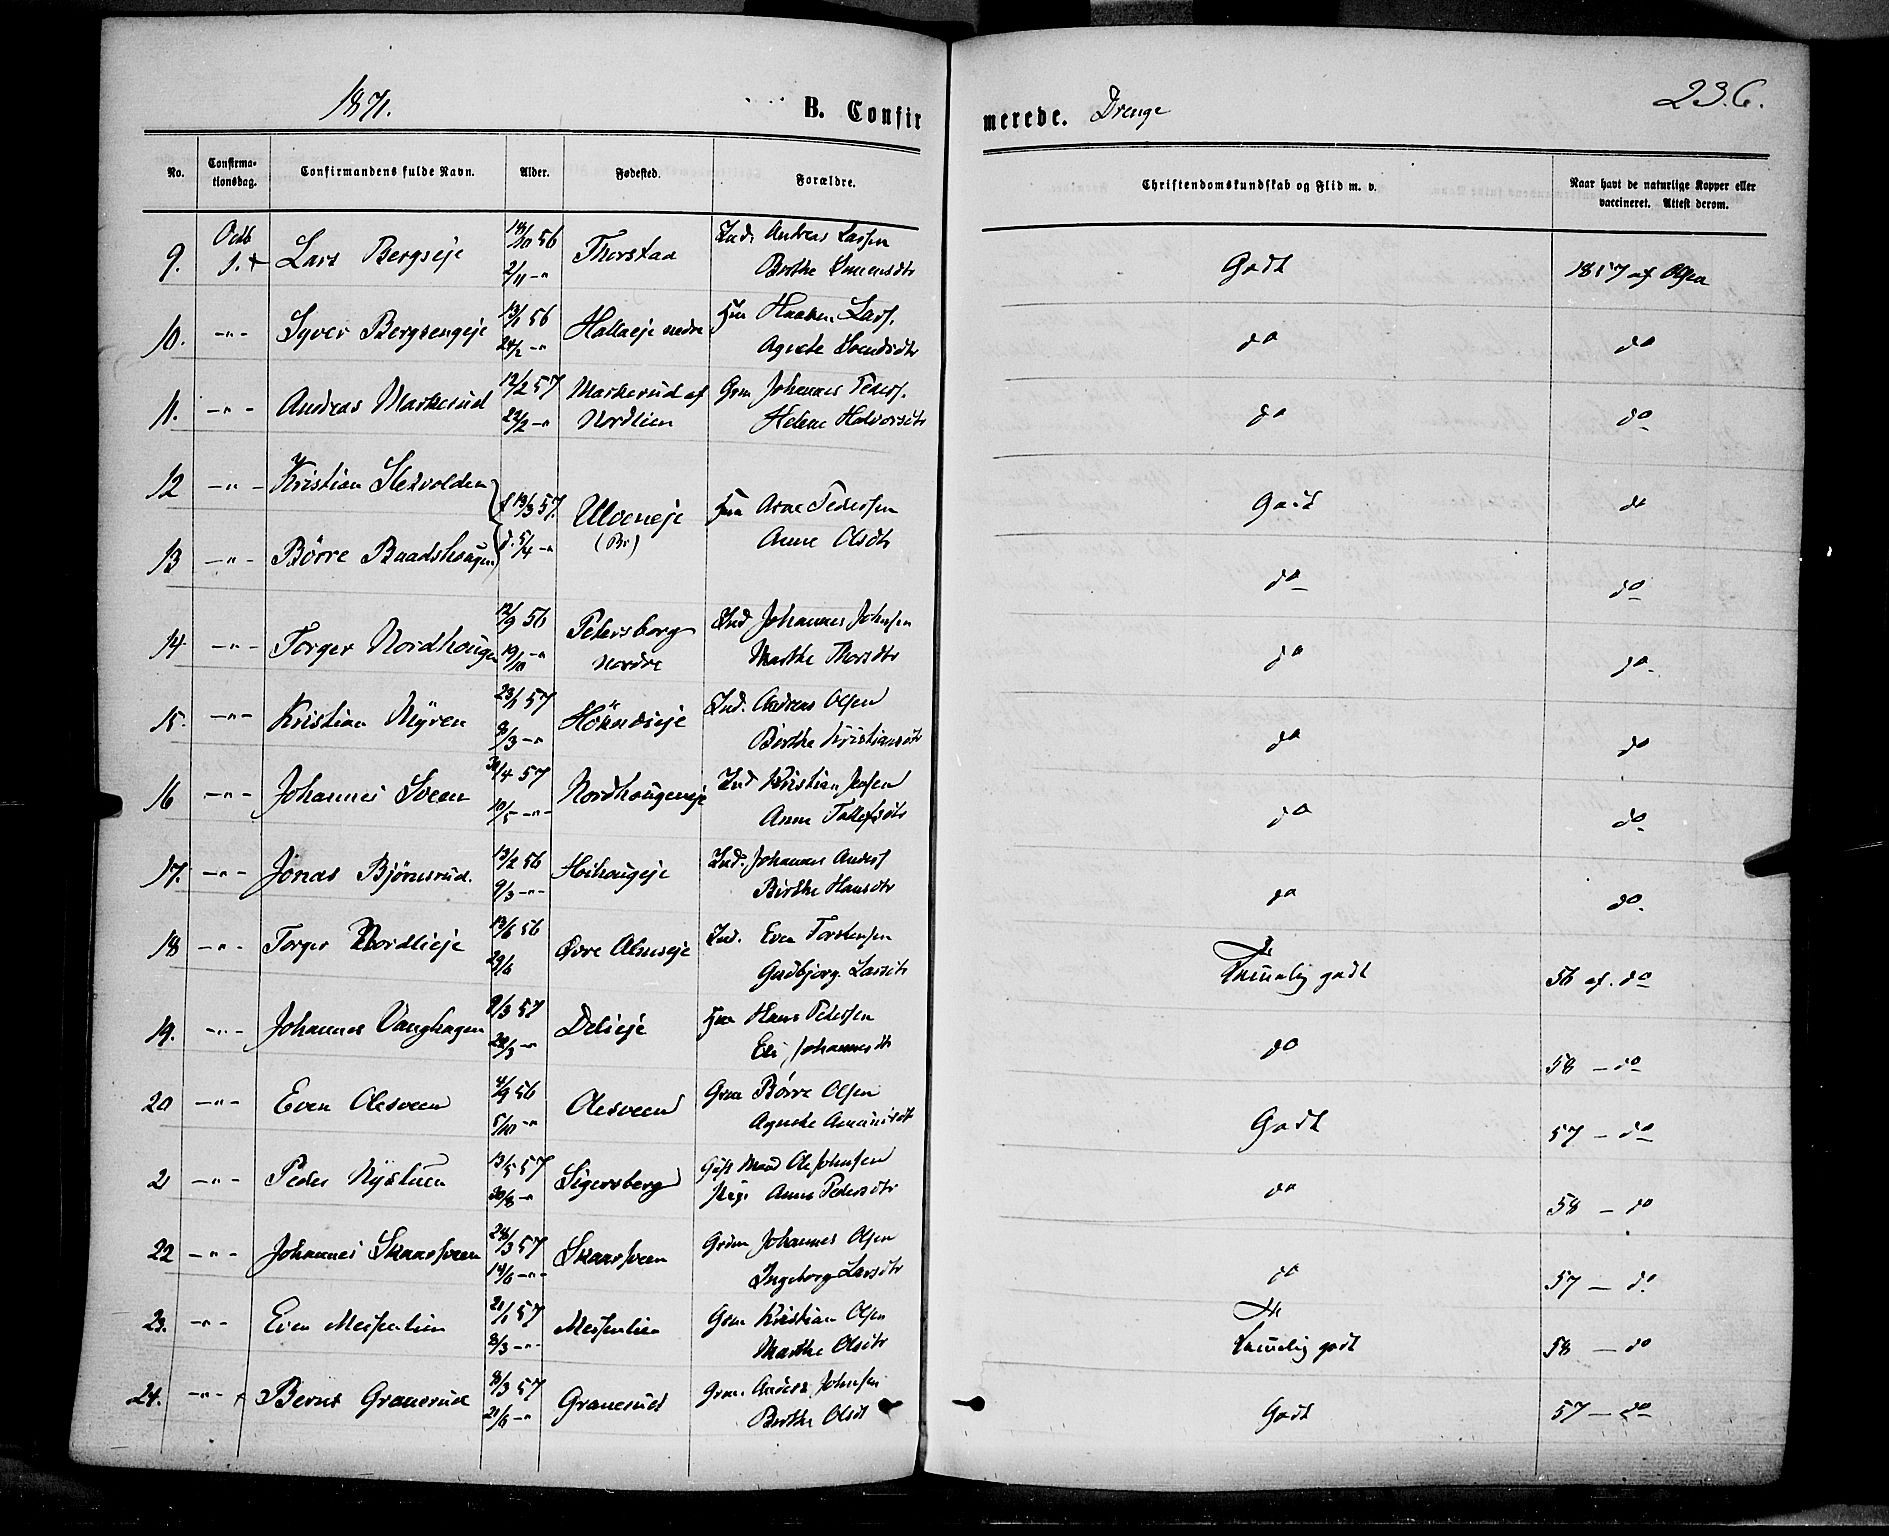 1871.
B. Confirmerede. Drenge
236.
No. Confirmationsdag. Confirmandens fulde Navn. Alder. Fødested. Forældre. Christendomskundskab og Flid m. v. Naar havt de naturlige Kopper eller vaccineret. Attest derom.
9. Octb 1. Lars Bergseje 18/10 56 2/11 -"- Thorstad Ind. Andreas Larsen
Berthe Simensdtr Godt 1857 af Olsen
10. -"- Syver Bergsengeje 13/1 56 24/2 -"- Hallaeje nedre Hm Haaken Lars.
Agnete Svendsdtr do do
11. -"- Andreas Markerud 12/2 57 22/2 -"- Markerud af Nordlien Grm Johannes Peders.
Helene Halvorsdtr do do
12 -"- Kristian Stesvolden f 13/3 57. Ulveneje (Br) Hm Arne Pedersen
Anne Olsdtr Godt do
13 -"- Børre Baadshaugen d. 5/4 -"- do do
14 -"- Torger Nordhaugen 12/9 56 19/10 -"- Petersborg nordre Ind Johannes Johnsen
Marthe Thorsdtr do do
15. -"- Kristian Myren 23/1 57 8/3 -"- Ind. Andreas Olsen
Berthe Kristiansdtr do do
16 -"- Johannes Sveen 30/4 57 10/5 -"- Nordhaugeneje Ind Kristian Jensen
Anne Tollefsdtr do do
17. -"- Jonas Bjørnsrud. 13/2 56 9/3 -"- Hoihaugeje Ind. Johannes Anders
Birthe Hansdtr do do.
18 -"- Torger Nordlieje 13/6 56 29/6 Øvre Alm­seje Ind. Even Torstensen
Gudbjørg Larsdtr Temelig godt 56 af. do
19. -"- Johannes Vanghagen 9/3 57 22/3 -"- Delieje Hm Hans Pedersen
Eli Johannesdtr do 58 - do
20 -"- Even Olesveen 4/9 56 5/10 -"- Olesveen Grm Børre Olsen
Agnethe Amundsdt Godt 57 - do
2 -"- Peder Nystuen 13/5 57 30/8 -"- Sigersberg Gift Mand Ole Johnsen
Pige Anne Pedersdtr do 58 - do
22 -"- Johannes Skaarsveen 24/3 57 14/6 -"- Skaarsveen Grdm Johannes Olsen
Ingeborg Larsdtr do 57 - do
23. -"- Even Messenlien 21/1 57 8/3 -"- Messenlien Grm Kristian Olsen
Marthe Olsdtr Temelig godt 58 - do
24. -"- Bernt Granerud 8/3 57 21/6 -"- Granerud Grm. Anders Johnsen
Berthe Olsdt Godt 57 - do